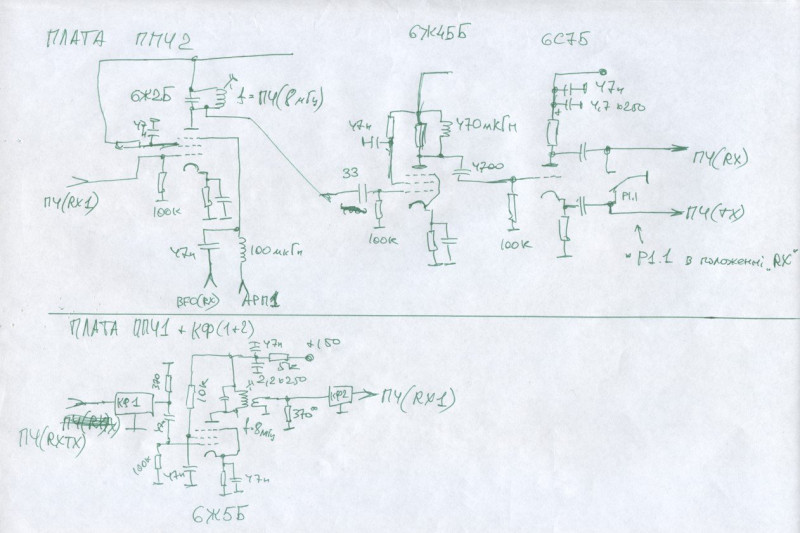 ПЛАТА ППЧ2
6Ж45Б
6С7Б
6Ж2Б
f=ПЧ(8мГц)
47н
47н
470мкГн
47н
4,7х250
4700
33
ПЧ(RX)
ПЧ(RX1)
100к
100к
100к
P1.1
ПЧ(TX)
47н
100мкГн
"P1.1 в положенні „RX"
BFO(RX)
АРП1
ПЛАТА ППЧ1 + КФ(1+2)
47н
+150
5к
2,2х250
370
10к
КФ1
КФ2
ПЧ(RX1)
370
f=8мГц
ПЧ(RXTX)
100к
47н
47н
6Ж5Б